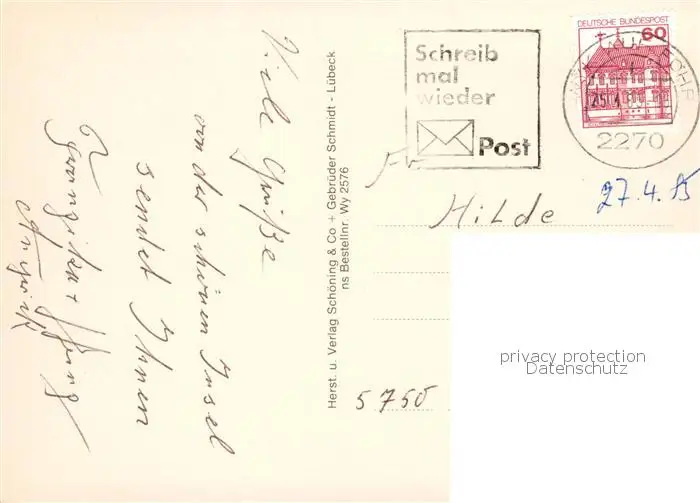 Viele Grüße
von der schönen Insel
sendet Ihnen
Herst. u. Verlag Schöning & Co + Gebrüder Schmidt - Lübeck
ns Bestellnr. Wy 2576
Schreib
mal
wieder
Post
DEUTSCHE BUNDESPOST
60
2270
27.4.85
Fr
Hilde
5750
privacy protection
Datenschutz